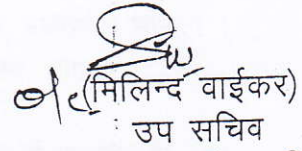 (मिलिन्द वाईकर)
उप सचिव